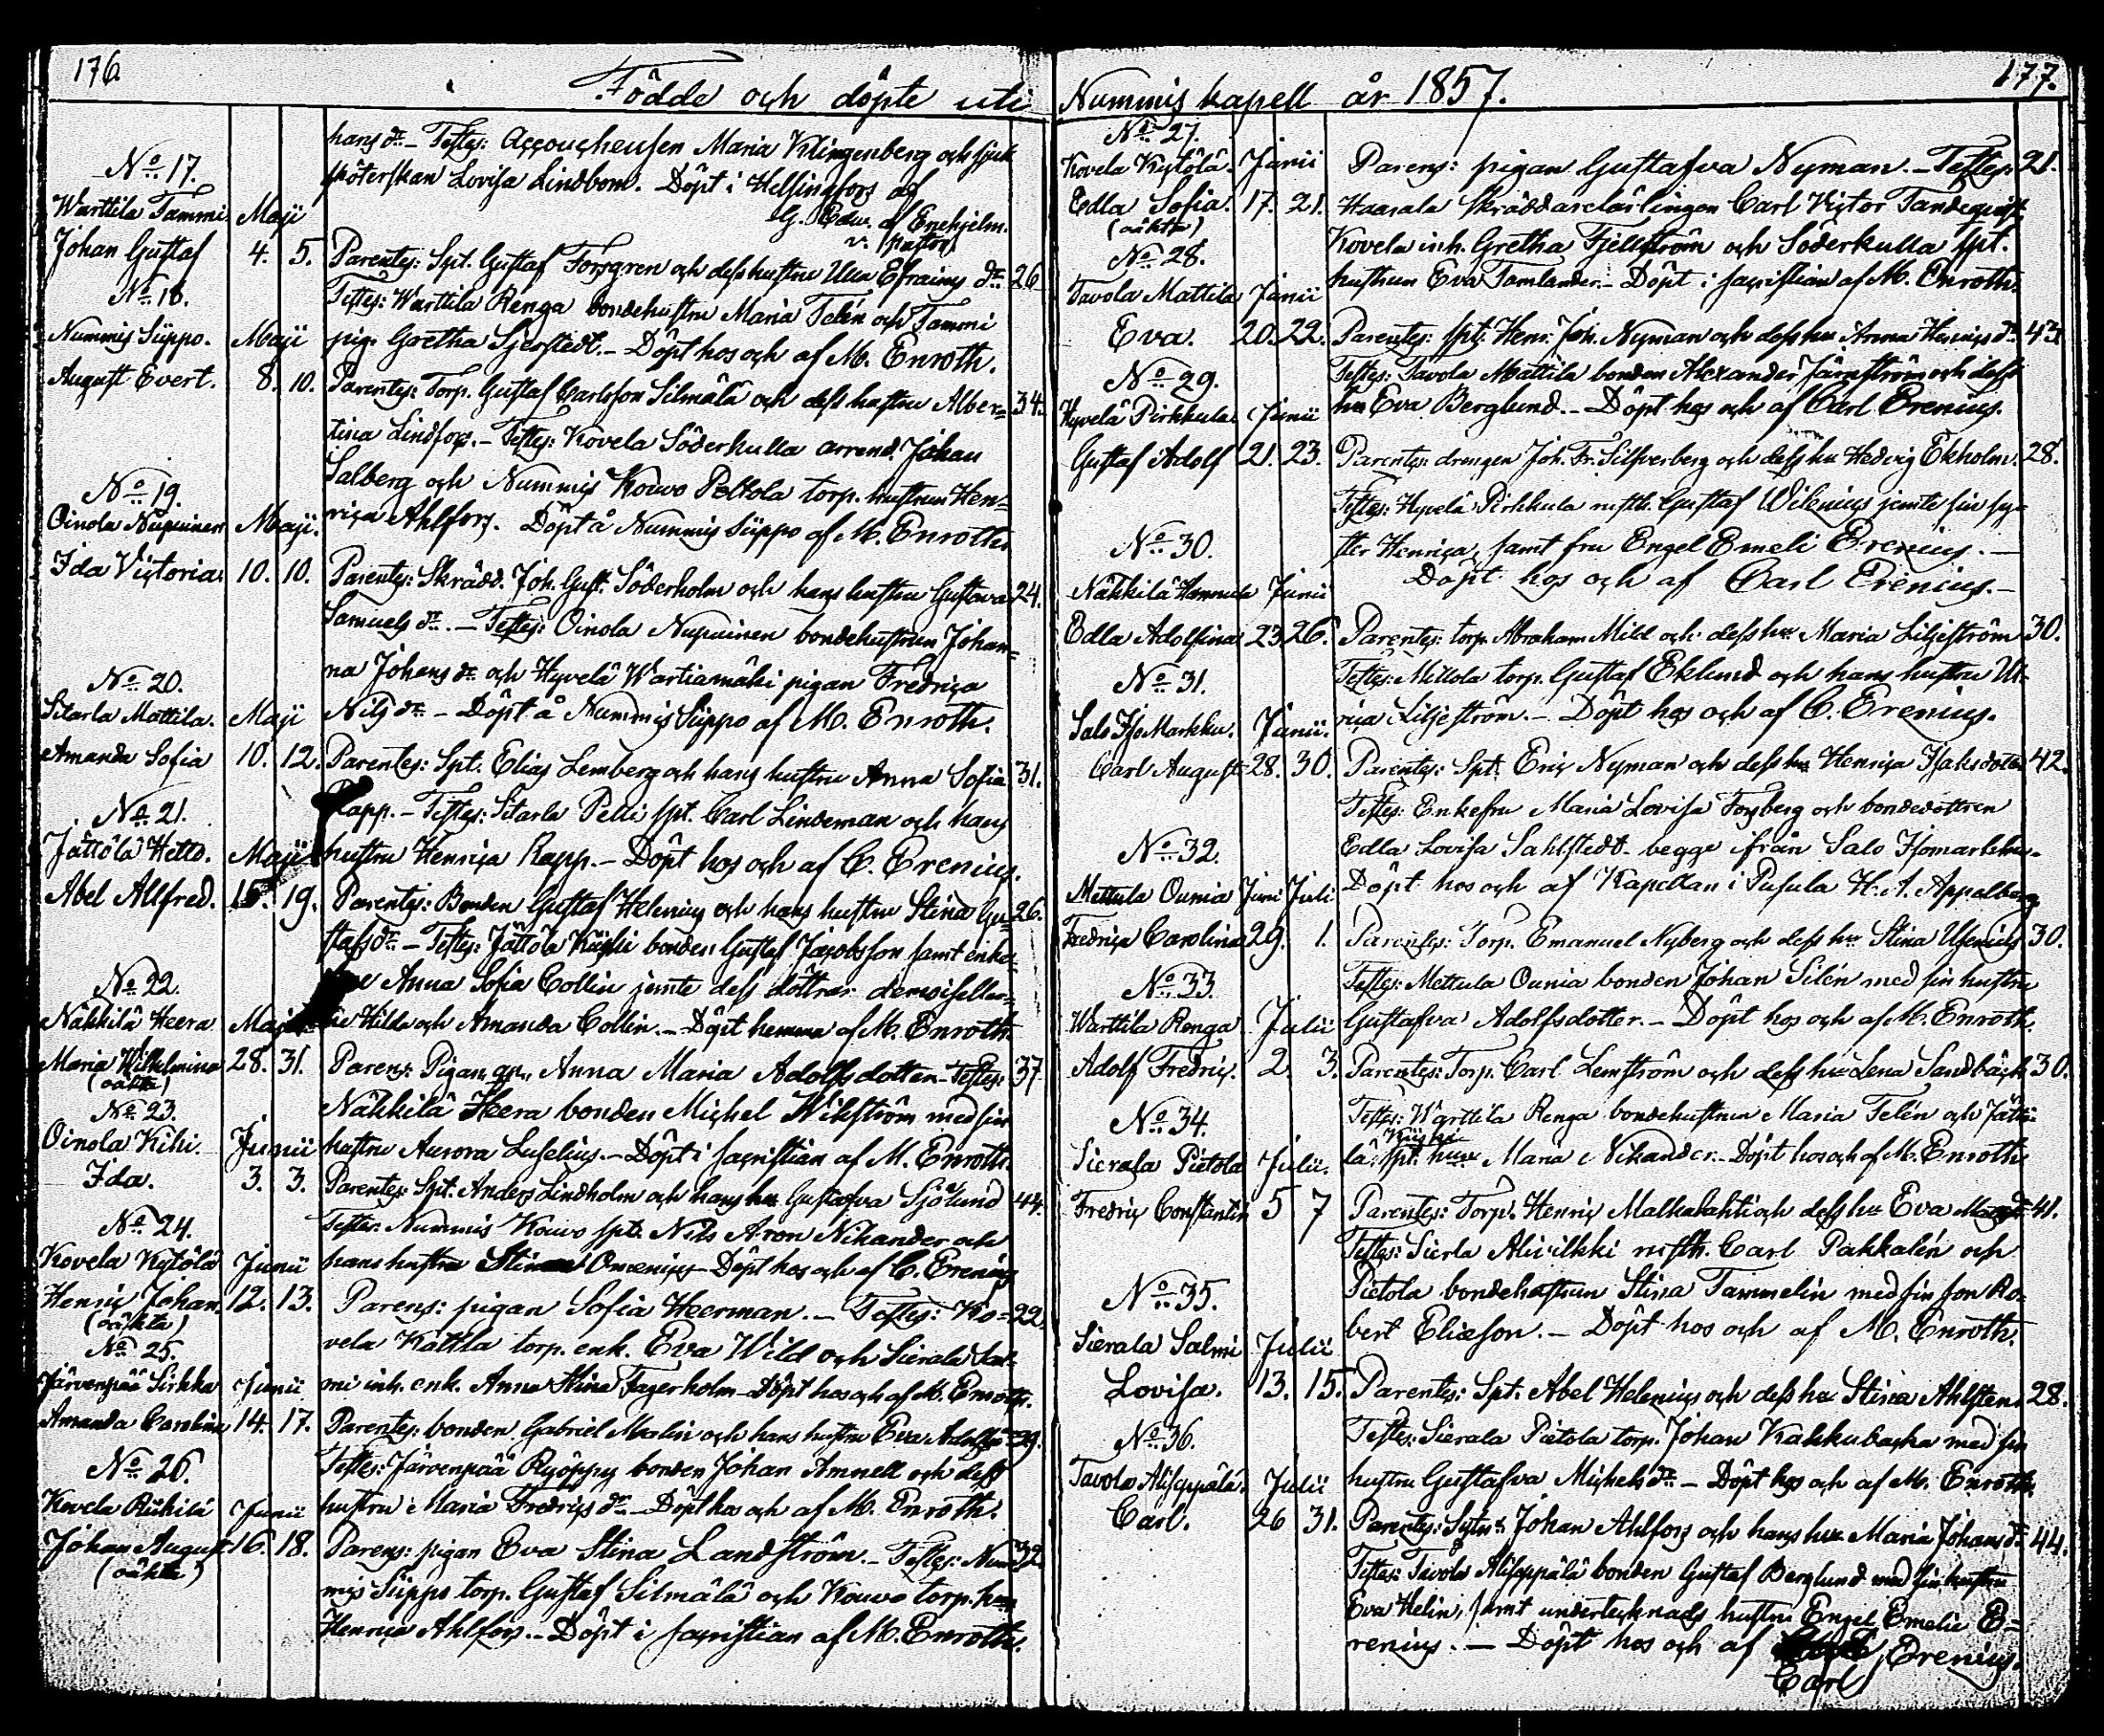 176.
Födde och döpte uti
hans dr. – Testes: Accoucheusen Maria Klingenberg och sjuk
sköterskan Lovisa Lindbom. Döpt i Helsingfors af
G. Edw. af Enehjelm.
v. pastor
No. 17.
Warttila Tammi. Maji
Johan Gustaf 4. 5. Parentes: Spt. Gustaf Forsgren och dess hustru Ulla Efraims dr. 26
Testes: Warttila Renga bondehustru Maria Telén och Tammi
pig. Gretha Sjerstedt. – Döpt hos och af M. Enroth.
No. 18.
Nummis Sippo. Maji
August Evert. 8. 10. Parentes: Torp. Gustaf Carlsson Silmälä och dess hustru Alber= 34.
tina Lindfors. – Testes: Kovela Söderkulla arrend. Johan
Salberg och Nummis Kouvo Peltola torp. hustrun Hen=
rica Ahlfors. Döpt å Nummis Sippo af M. Enroth.
No. 19.
Oinola Nupuinen Maji.
Ida Victoria. 10. 10. Parentes: Skrädd. Joh. Gust. Söderholm och hans hustru Gustava 24.
Samuels dr. – Testes: Oinola Nupuinen bondehustrun Johan=
na Johans dr och Hyvelä Wartiamäki pigan Fredrica
Nils dr. – Döpt å Nummis Sippo af M. Enroth.
No. 20.
Sitarla Mattila. Maji
Amanda Sofia 10. 12. Parentes: Spt. Elias Lemberg och hans hustru Anna Sofia 31.
Rapp. – Testes: Sitarla Pelli spt. Carl Lindeman och hans
hustru Henrica Rapp. – Döpt hos och af C. Erenius.
No. 21.
Jättölä Hettö. Maji
Abel Alfred. 15. 19. Parentes: Bonden Gustaf Helenius och hans hustru Stina Gu= 26.
stafs dr. – Testes: Jättölä bonden Gustaf Jacobsson samt enke=
Anna Sofia Collin jemte dess döttrar demoiseller=
ne Hilda och Amanda Collin. – Döpt hemma af M. Enroth.
No. 22.
Näkkilä Heera Maji
Maria Wilhelmina 28. 31. Parens: Pigan Anna Maria Adolfsdotter. – Testes: 37
(oäkta)
Näkkilä Heera bonden Michel Wikström med sin
hustru Aurora Luselius. – Döpt i sacristian af M. Enroth.
No. 23.
Oinola Kihi. Junii
Ida. 3. 3. Parentes: Spt. Anders Lindholm och hans hu Gustafva Sjölund 44.
Testes: Nummis Kouvo spt. Nils Aron Nikander och
hans hustru Stina Omenius – Döpt hos och af C. Erenius
No. 24.
Kovela Kytölä Junii
Henric Johan. 12. 13. Parens: pigan Sofia Heerman. – Testes: Ko= 22.
(oäkta)
vela Kattila torp. enk. Eva Wild och Sierala Sal=
mi inh. enk. Anna Stina Fagerholm – Döpt hos och af M. Enroth.
No. 25.
Järvenpää Sirkka Junii
Amanda Carolina 14. 17. Parentes: bonden Gabriel Merlin och hans hustru Eva 39.
Testes: Järvenpää Ryöppys bonden Johan Amnell och dess
hustru Maria Fredrics dr. – Döpt hos och af M. Enroth.
No. 26.
Kovela Rükilä Junii
Johan August 16. 18. Parens: pigan Eva Stina Landström. – Testes: Num= 32.
(oäkta)
mis Sippo torp. Gustaf Silmälä och Kouvo torp. hu
Henrica Ahlfors. – Döpt i sacristian af M. Enroth.
177.
Nummis kapell år 1857.
No. 27.
Kovela Kytölä. Junii
Edla Sofia. 17. 21. Parens: pigan Gustafva Nyman. – Testes: 21.
(oäkta)
Haarala skräddarelärlingen Carl Victor Tandeqvist,
Kovela inh. Gretha Fjellström och Söderkulla spt.
hustrun Eva Tamlander. – Döpt i sacristian af M. Enroth.
No. 28.
Tavola Mattila Junii
Eva. 20. 22. Parentes: spt. Henr. Joh. Nyman och dess hu Anna Henrics dr. 43.
Testes: Tavola Mattila bonden Alexander Järnström och dess
hu Eva Berglund. – Döpt hos och af Carl Erenius.
No. 29.
Hyvelä Pirkkula. Junii
Gustaf Adolf 21. 23. Parentes: drengen Joh. Fr. Silfverberg och dess hu Hedvig Ekholm. 28.
Testes: Hyvelä Pirkkula rusth. Gustaf Wilenius jemte sin sy=
ster Henrica, samt fru Engel Emeli Erenius. –
Döpt hos och af Carl Erenius. –
No. 30.
Näkkilä Hannula Junii
Edla Adolfina 23. 26. Parentes: torp. Abraham Mild och dess hu Maria Liljeström 30.
Testes: Millola torp. Gustaf Eklund och hans hustru Ul=
rica Liljeström. – Döpt hos och af C. Erenius.
No. 31.
Salo IsoMarkku. Junii.
Carl August 28. 30. Parentes: Spt. Eric Nyman och dess hu Henrica Isaksdotter 42.
Testes: Enkefru Maria Lovisa Forsberg och bondedottren
Edla Lovisa Sahlstedt begge ifrån Salo Isomarkku.
Döpt hos och af Kapellan i Pusula H. A. Appelberg
No. 32.
Mettula Ounia Juni Juli
Fredrica Carolina 29. 1. Parentes: Torp. Emanuel Nyberg och dess hu Stina Usenius 30.
Testes: Mettula Ounia bonden Johan Silén med sin hustru
Gustafva Adolfsdotter. – Döpt hos och af M. Enroth.
No. 33.
Warttila Renga Julii
Adolf Fredric. 2. 3. Parentes: Torp. Carl Lemström och dess hu Lena Sandbäck 30.
Testes: Warttila Renga bondehustrun Maria Telén och Jättö=
lä spt. hu Maria Nikander. – Döpt hos och af M. Enroth
No. 34.
Sierala Pietola Julii.
Fredric Constantin 5 7 Parentes: Torp. Henric Malkalahti och dess hu Eva 41.
Testes: Sierla Alivilkki rusth. Carl Pakkalén och
Pietola bondehustrun Stina Tammelin med sin son Ro=
bert Eliæson. – Döpt hos och af M. Enroth.
No. 35.
Sierala Salmi Julii
Lovisa. 13. 15. Parentes: Spt. Abel Helenius och dess hu Stina Ahlsten 28.
Testes: Sierala Pietola torp. Johan Kakkubacka med sin
hustru Gustafva Michels dr. – Döpt hos och af M. Enroth.
No. 36.
Tavola Alisippälä. Julii
Carl. 26 31. Parentes: Sytn. Johan Ahlfors och hans hu Maria Johans dr. 44.
Testes: Tavola Alisippälä bonden Gustaf Berglund med sin hustru
Eva Helin, samt undertecknads hustru Engel Emelie E=
renius. – Döpt hos och af Erenius.
Carl